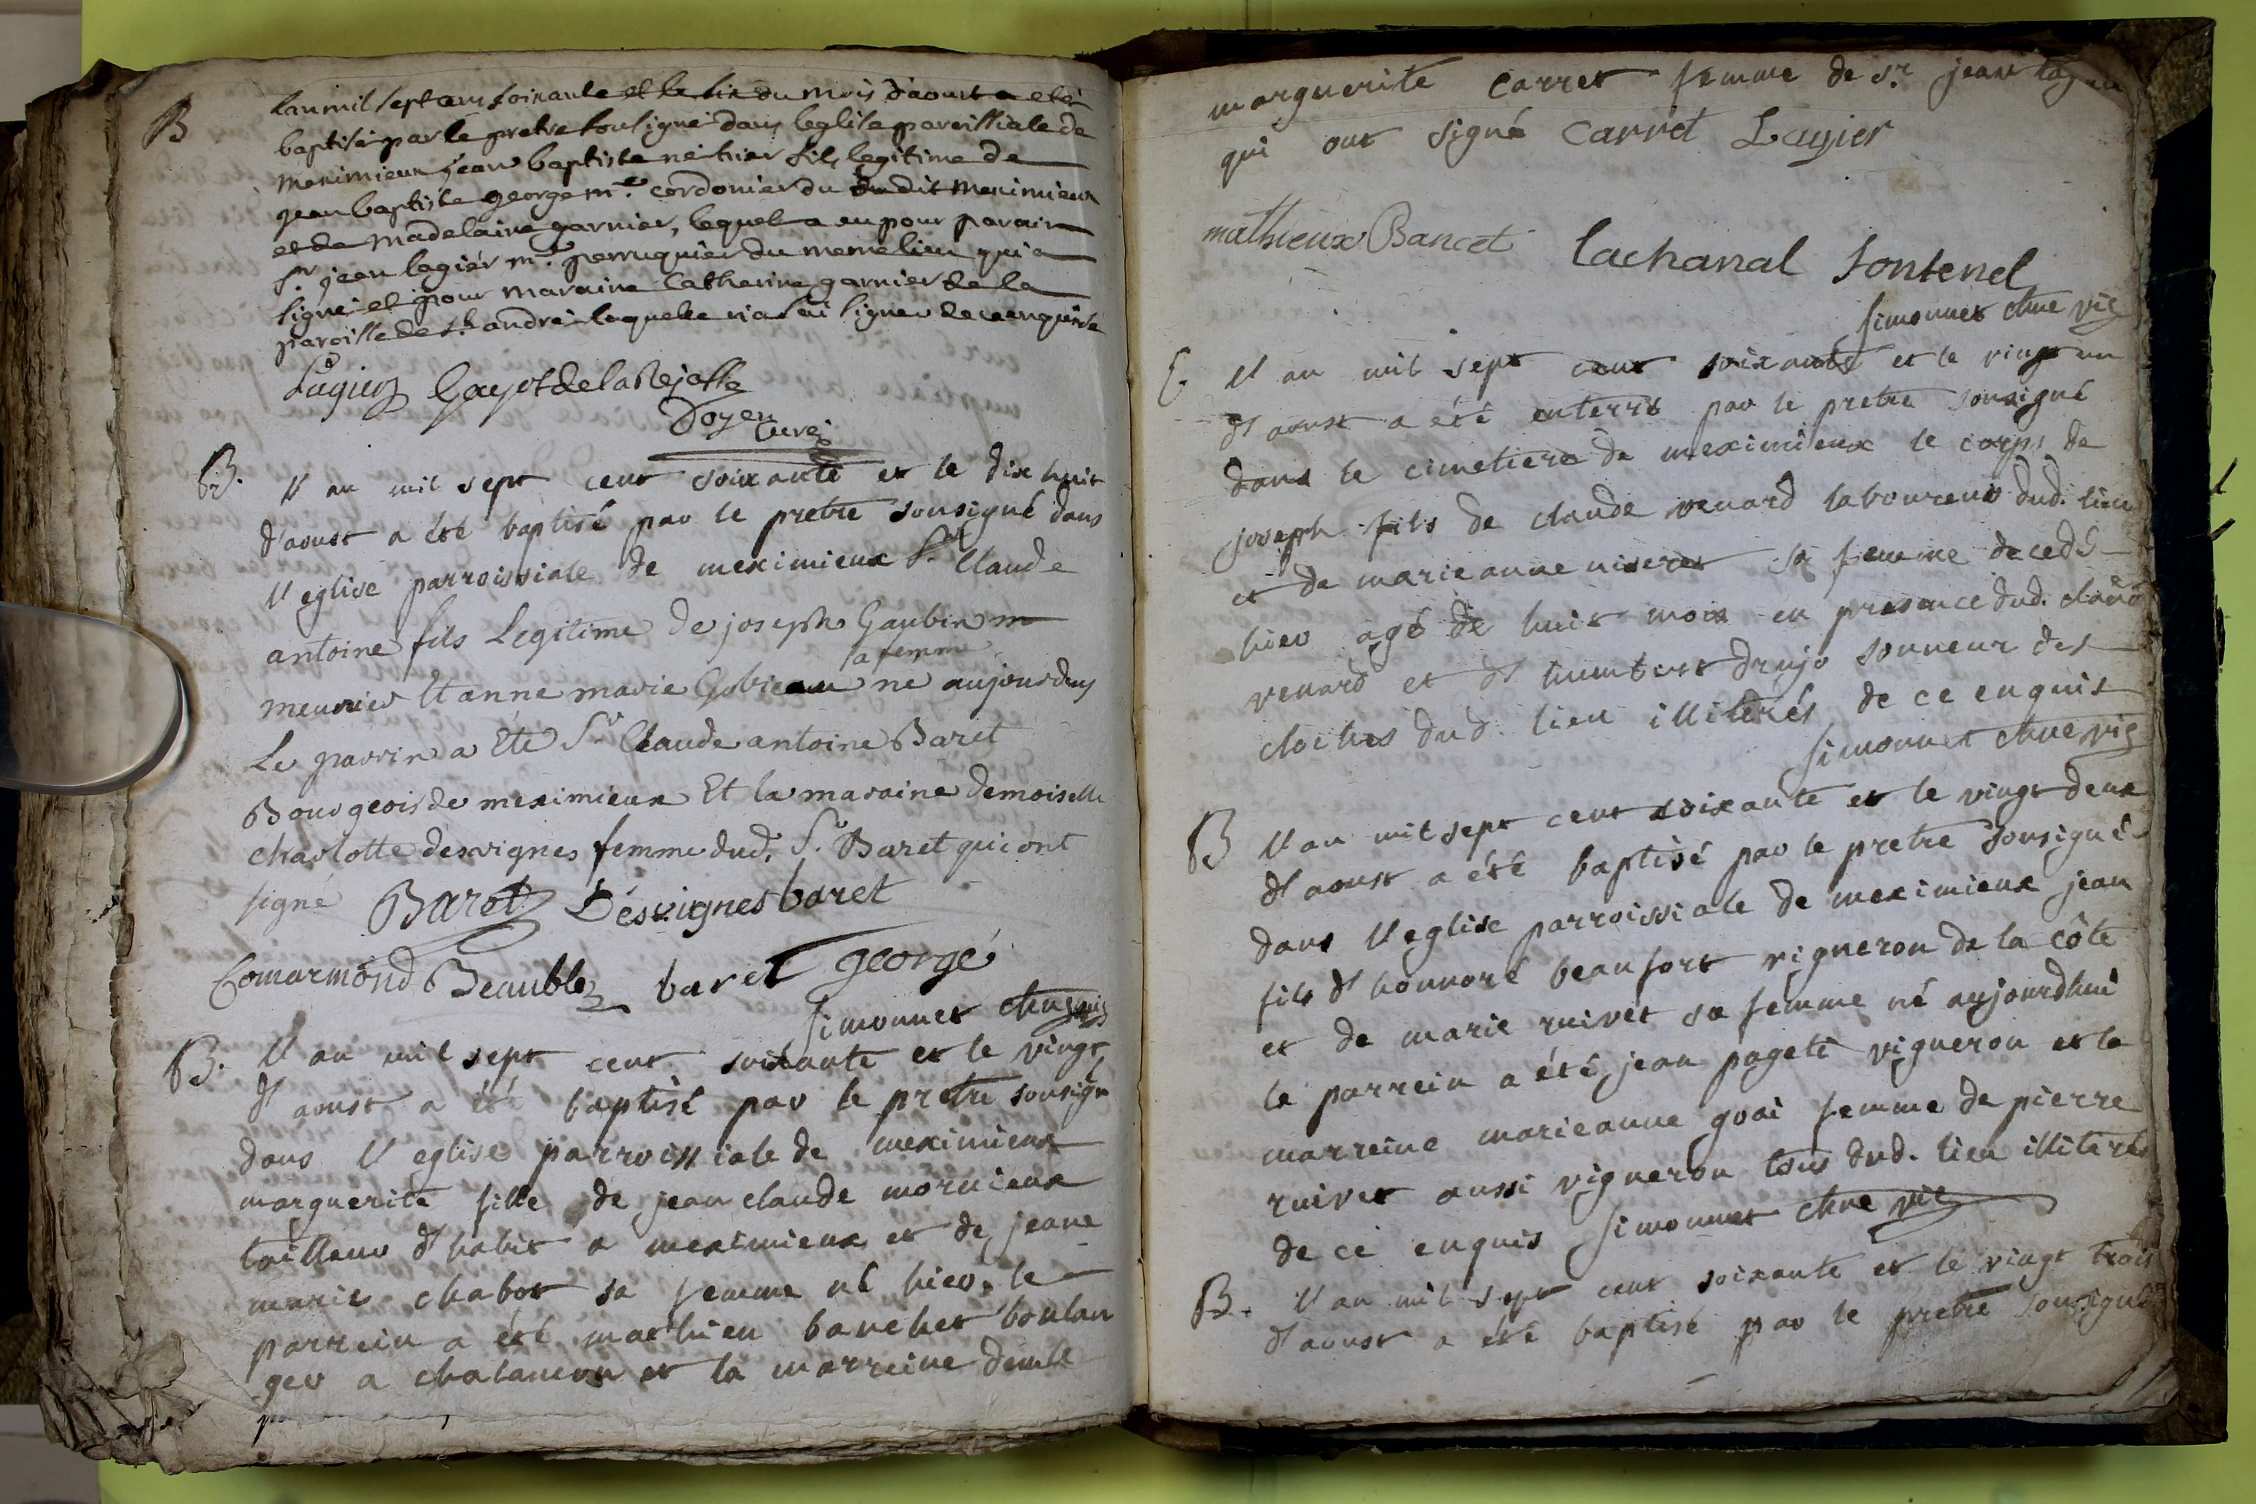 B
Lan mil sept cens soixante et le six du mois d'aoust a eté
baptisé par le pretre sousigné dans leglise paroissiale de
meximieux jean baptiste né hier fils legitime de
jean baptiste george me. cordonier du dit meximieux
et de madelaine garnier, lequel a eu pour parain
sr. jean lagier me. perruquier du meme lieu qui a
signé et pour maraine Catherine garnier de la
paroisse de st. andré laquelle n'a sçu signer de ce enquise
Lagier gayot de la Rejasse
Doyen
Curé
B. l'an mil sept cent soixante et le dix huit
d'aoust a été baptisé par le pretre sousigné dans
l'eglise parroissiale de meximieux Sr. Claude
antoine fils Legitime de joseph Gaubin m
sa femme
meunier Et anne marie né aujourduy
Le parrin a Eté Sr. Claude antoine Baret
Bourgeois de meximieux Et la maraine demoiselle
charlotte desvignes femme dud. Sr. Baret qui ont
signé Baret Désvignes baret
Comarmond Beaublez baret george
Simonnet chne vic
B. l'an mil sept cent soixante et le vingt
d'aoust a été baptisé par le pretre sousigné
dans l'eglise parroissiale de meximieux
marguerite fille de jean claude mornieux
tailleur d'habit a meximieux et de jeane
marie chabot sa femme né hier. le
parrein a été mathieu banchet boulan
ger a chalamon et la marreine demlle
marguerite carret femme de sr. jean lagier
qui ont signé Carret Lagier
mathieux Bancet lachanal fontenel
Simonnet chne vic
E l'an mil sept cent soixante et le vingt un
d'aoust a été enterré par le pretre sousigné
dans le cimetiere de meximieux le corps de
joseph fils de claude venard laboureur dud. lieu
et de marieanne niseret sa femme decedé
hier agé de huit mois en presence dud. claude
venard et d'humbert drujo sonneur des
cloches dud. lieu illiterés de ce enquis
Simonnet chne vic
B l'an mil sept cent soixante et le vingt deux
d'aoust a été baptisé par le pretre sousigné
dans l'eglise parroissiale de meximieux jean
fils d'honnoré beaufort vigneron de la côte
et de marie ruivet sa femme né aujourdhui
le parrein a été jean pageti vigneron et la
marreine marieanne goai femme de pierre
ruivet aussi vigneron tous dud. lieu illiterés
de ce enquis Simonnet chne vic
B. l'an mil sept cent soixante et le vingt trois
d'aoust a été baptisé par le pretre sousigné